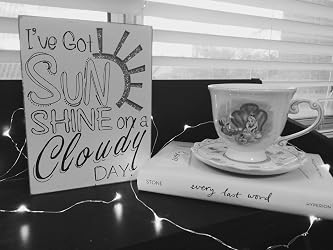 I've Got
SUN
SHINE on a
Cloudy
DAY!
STONE every last word HYPERION